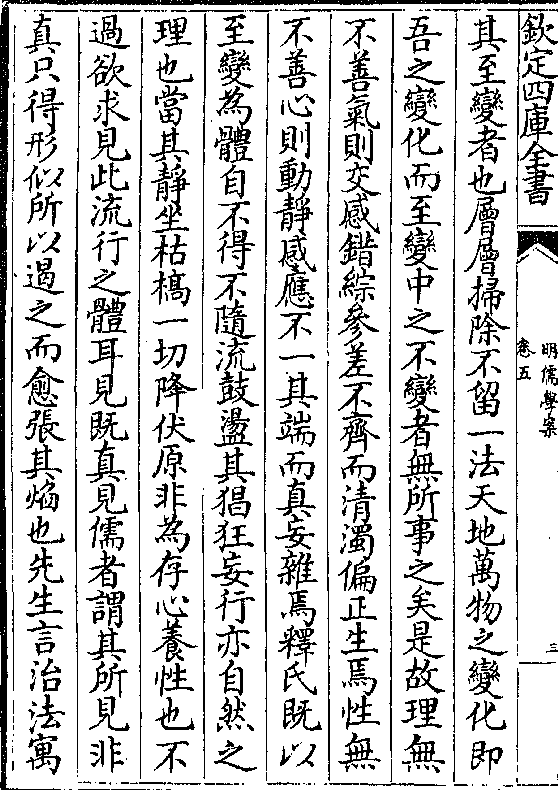 欽定四庫全書
明儒學案
卷五
三
其至變者也層層掃除不留一法天地萬物之變化即
吾之變化而至變中之不變者無所事之矣是故理無
不善氣則交感錯綜參差不齊而清濁偏正生焉性無
不善心則動靜感應不一其端而真妄雜焉釋氏既以
至變為體自不得不隨流鼓盪其猖狂妄行亦自然之
理也當其靜坐枯槁一切降伏原非為存心養性也不
過欲求見此流行之體耳見既真見儒者謂其所見非
真只得形似所以遏之而愈張其焰也先生言治法寓